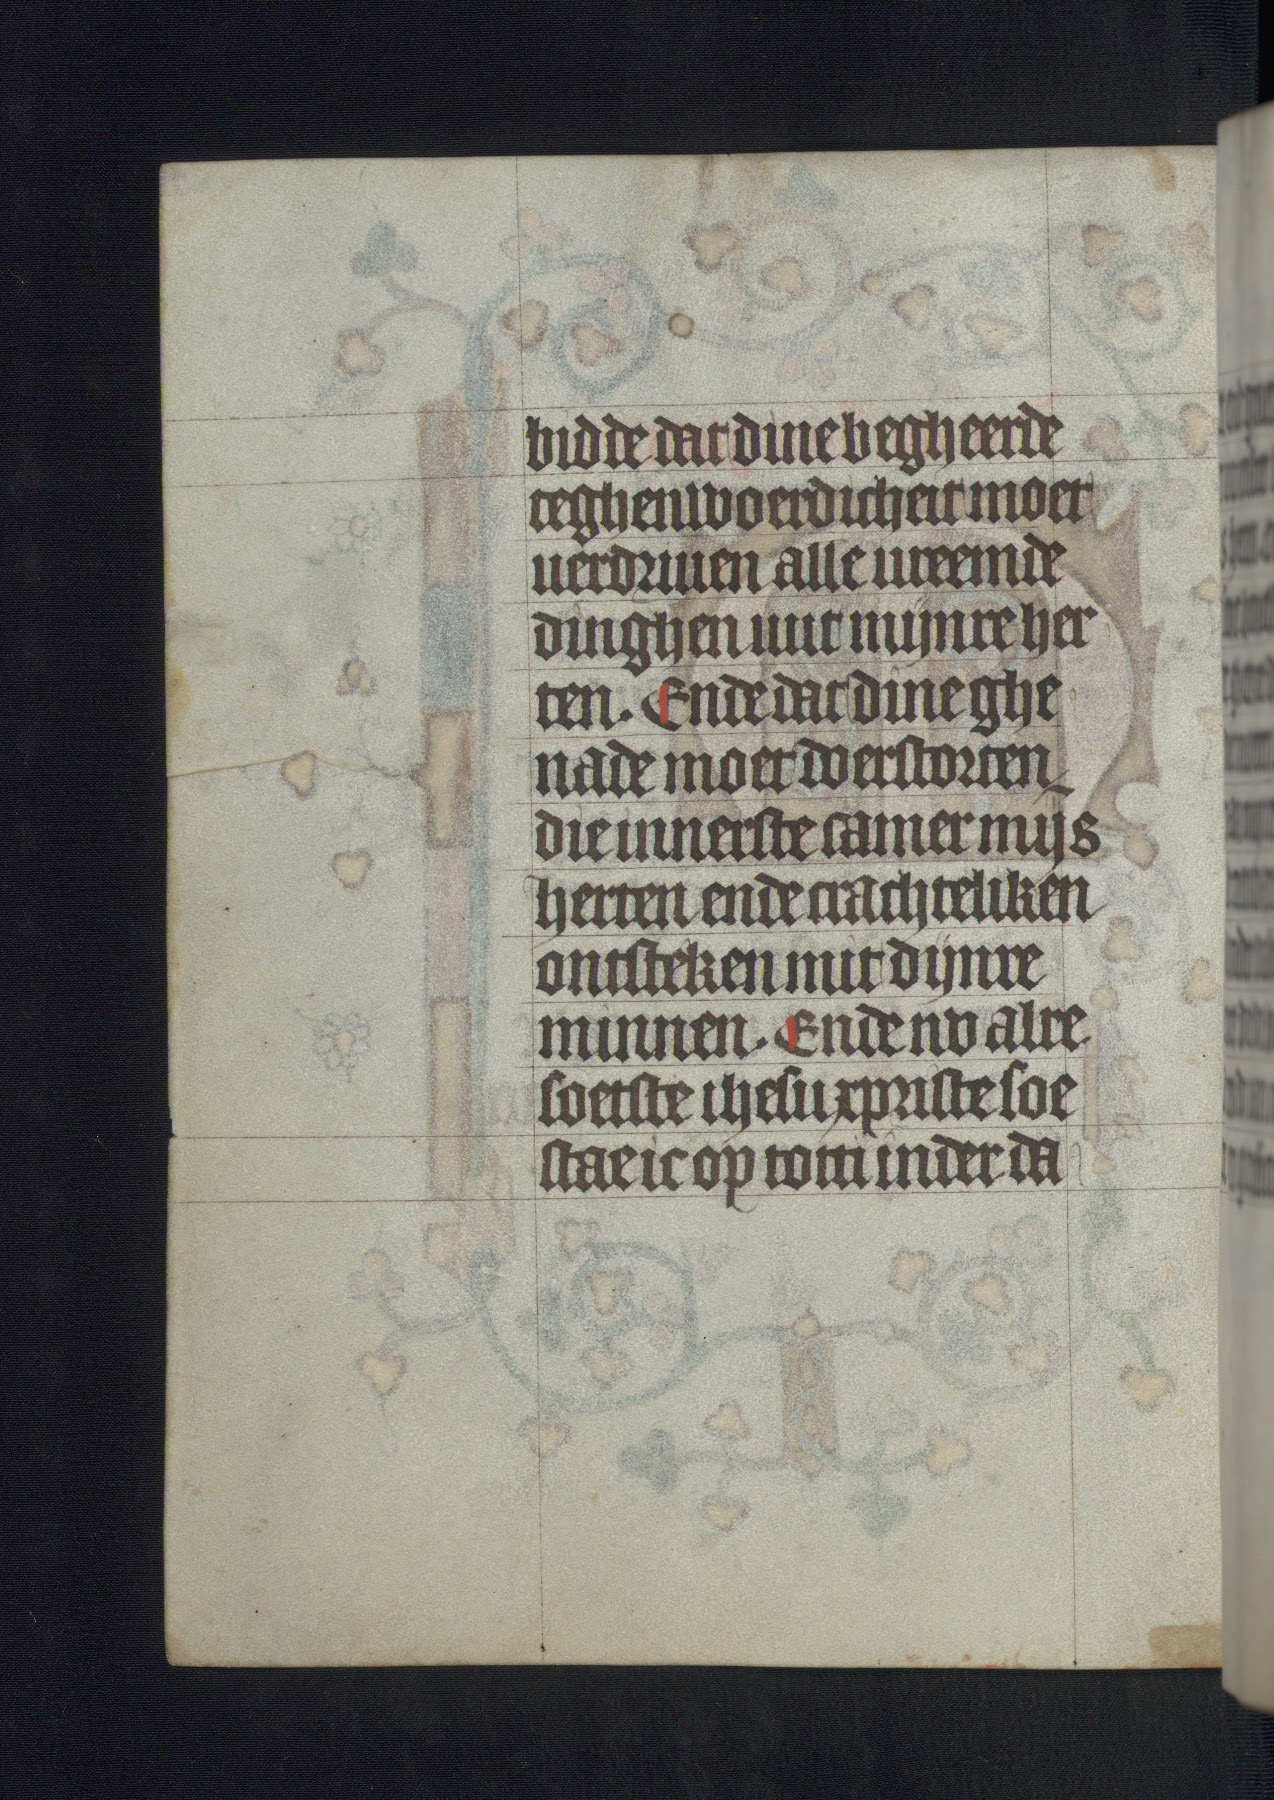 bidde dat dine begheerde
teghenwoerdicheit moet
uerdriuen alle ureemde
dinghen uut mijnre her
ten. Ende dat dine ghe
nade moet doerstorten
die innerste camer mijs
herten ende crachteliken
ontsteken mit dijnre
minnen. Ende nv alre
soetste ihesu xpriste soe
stae ic op totti in der da